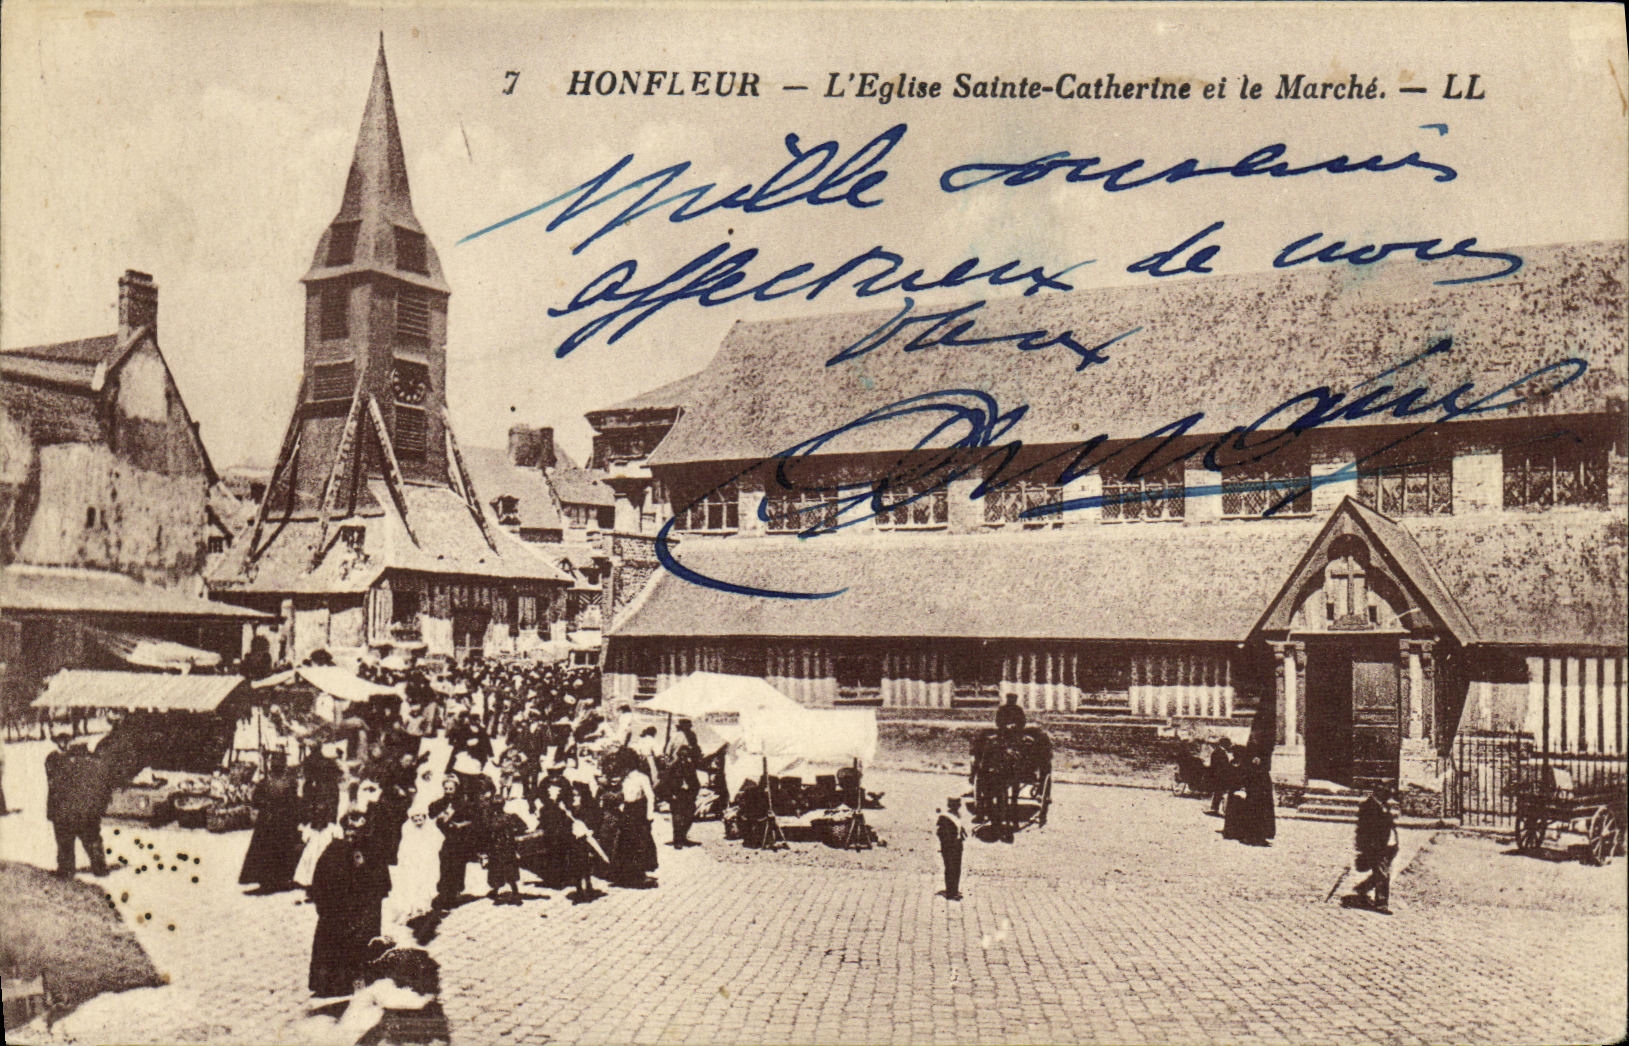 7 HONFLEUR — L'Eglise Sainte-Catherine et le Marché. — LL
Mille souvenirs
affectueux de nous
deux